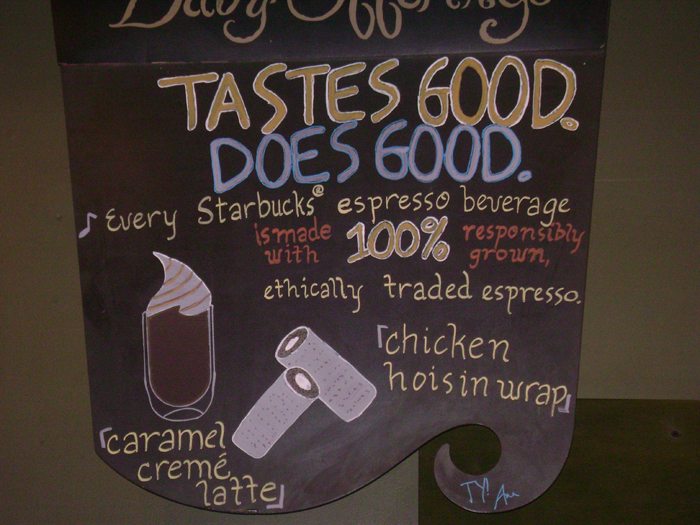 Daily Offerings
TASTES GOOD.
DOES GOOD.
♪ Every Starbucks® espresso beverage
is made with 100% responsibly grown,
ethically traded espresso.
「chicken
hoisin wrap」
「caramel
cremé
latte」
TY!